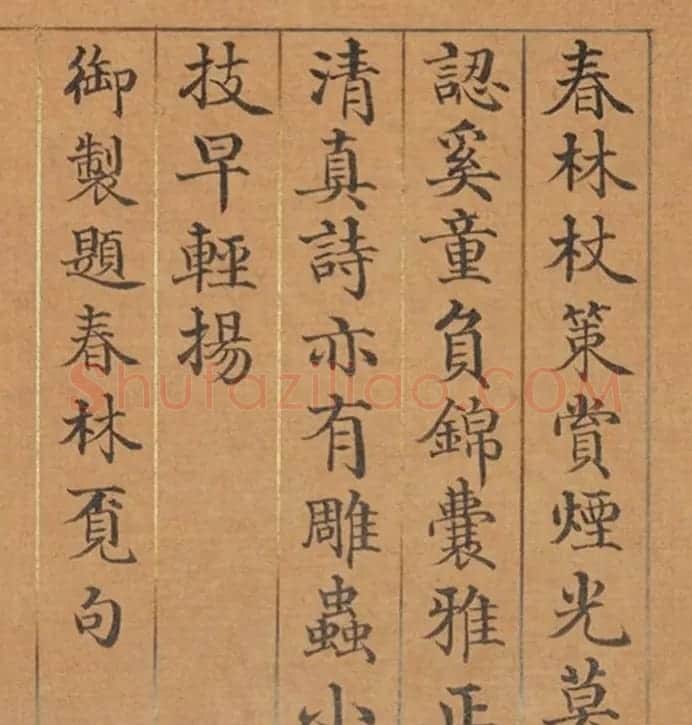 春林杖策賞煙光莫
認奚童負錦囊雅正
清真詩亦有雕蟲小
技早輕揚
御製題春林覔句
Shufaziliao.COM